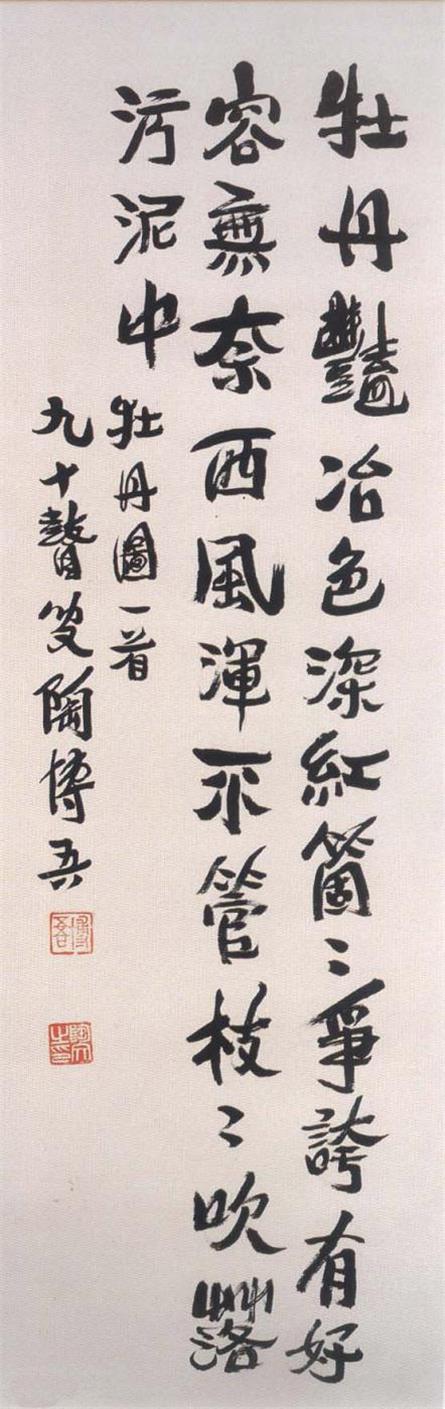 牡丹豔冶色深紅箇〻爭誇有好
容無奈西風渾不管枝〻吹落
污泥中 牡丹圖一首
九十瞽叟陶博吾